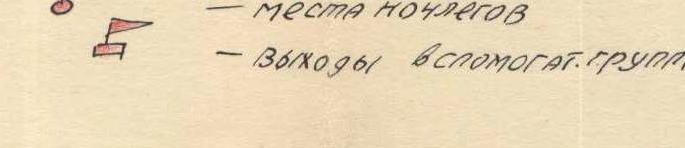 — места ночлегов
— выходы вспомогат. групп